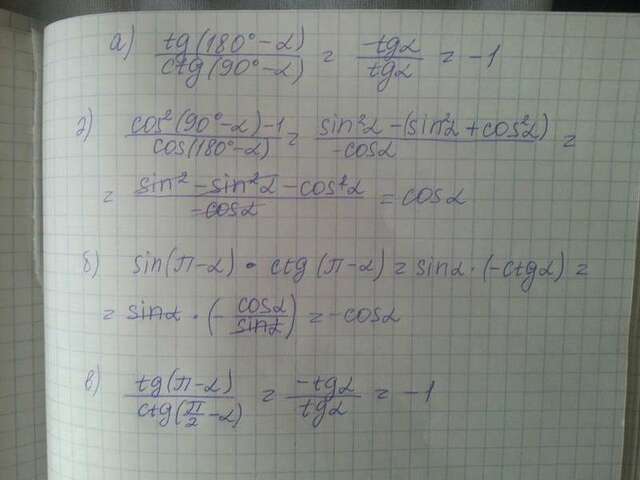 а) tg(180°-α)/ctg(90°-α) = -tgα/tgα = -1
г) cos²(90°-α)-1/cos(180°-α) = sin²α-(sin²α+cos²α)/-cosα =
= sin²-sin²α-cos²α/-cosα = cosα
б) sin(π-α) • ctg(π-α) = sinα·(-ctgα) =
= sinα·(-cosα/sinα) = -cosα
в) tg(π-α)/ctg(π/2-α) = -tgα/tgα = -1